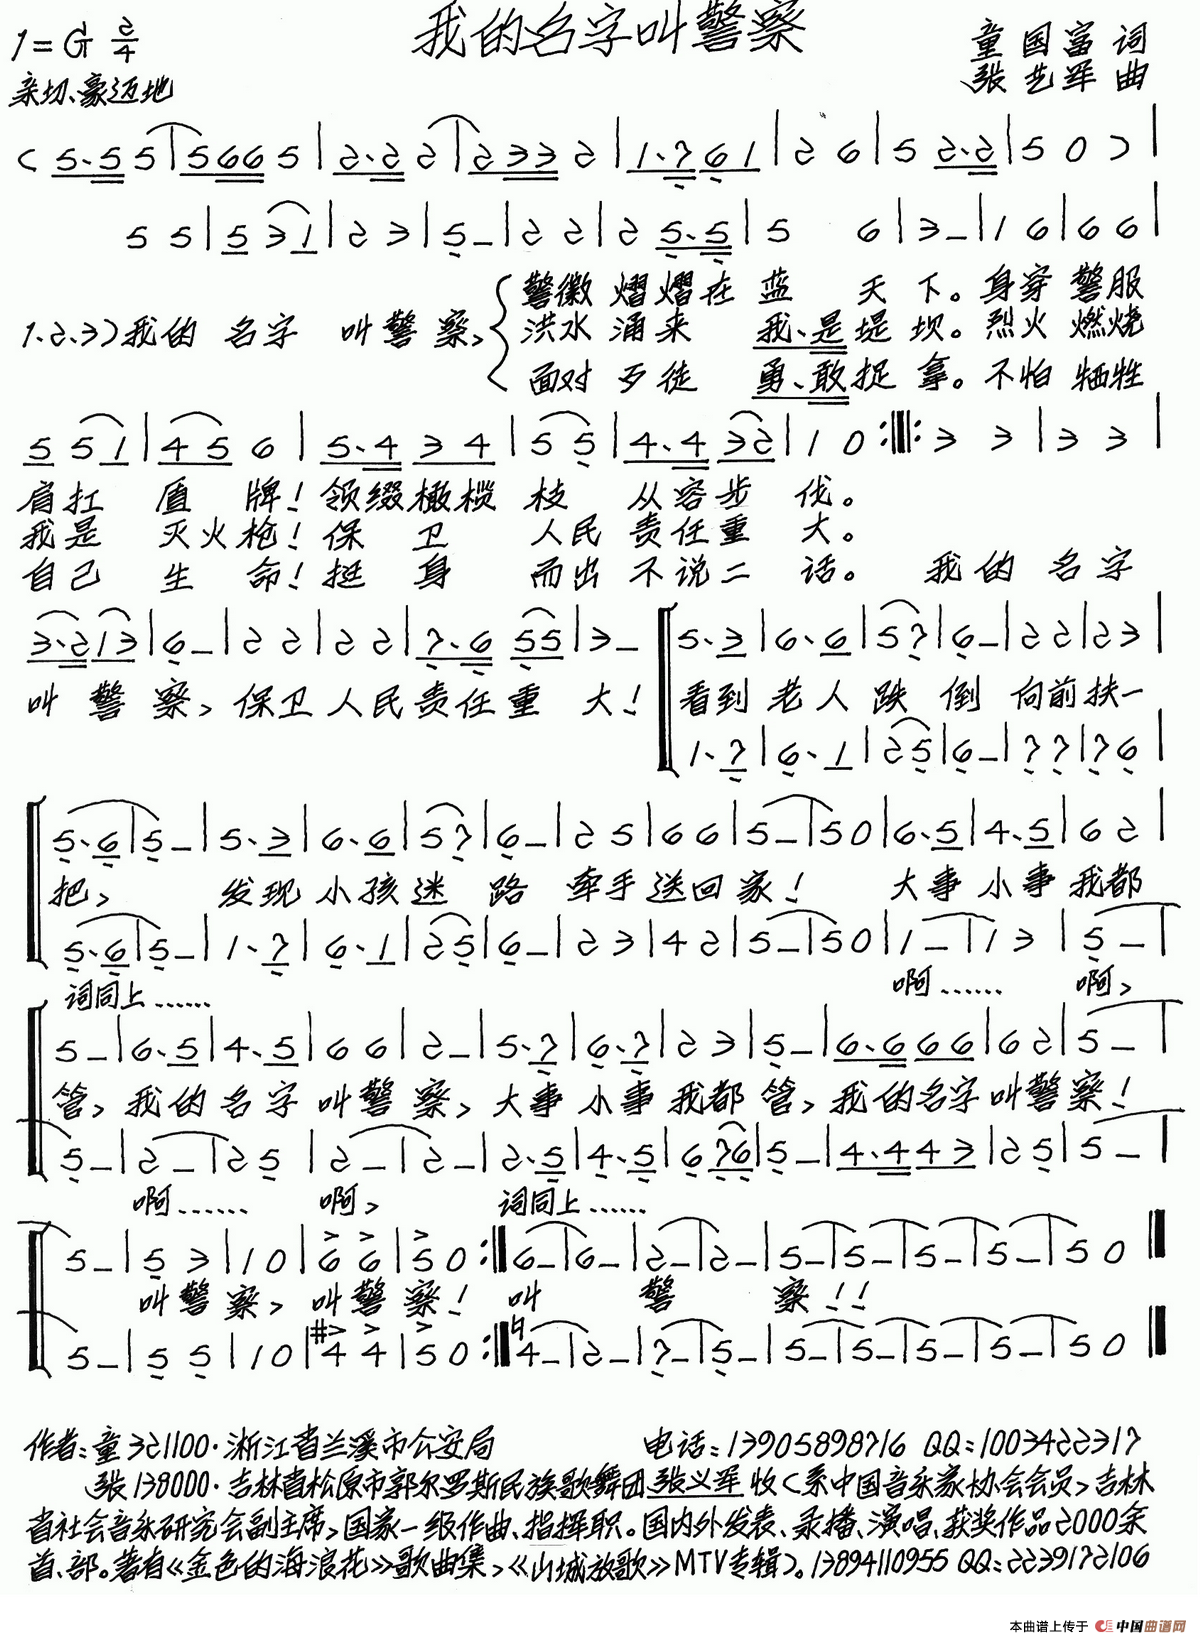 我的名字叫警察
1=G 2/4
童国富 词
亲切、豪迈地
张艺军 曲
( 5.5 5 | 5 6 6 5 | 2.2 2 | 2 3 3 2 | 1.7 6 1 | 2 6 | 5 2.2 | 5 0 ) |
5 5 | 5 3 1 | 2 3 | 5 – | 2 2 | 2 5.5 | 5 6 | 3 – | 1 6 | 6 6 |
警徽 熠熠在 蓝 天 下。身穿 警服
1.2.3)我的 名字 叫警 察、 洪水 涌来 我、是堤 坝。烈火 燃烧
面对 歹徒 勇、敢捉 拿。不怕 牺牲
5 5 1 | 4 5 6 | 5.4 3 4 | 5 5 | 4.4 3 2 | 1 0 :‖: 3 3 | 3 3 |
肩扛 盾 牌！领缀橄榄 枝 从容步 伐。
我是 灭火枪！保 卫 人民 责任重 大。
自己 生 命！挺 身 而出 不说二 话。 我的 名字
3.2 1 3 | 6 – | 2 2 | 2 2 | 7.6 5 5 | 3 – ‖ 5.3 | 6.6 | 5 7 | 6 – | 2 2 | 2 3 |
叫 警 察、保卫 人民 责任重 大！ 看到 老人 跌 倒 向前 扶一
1.7 | 6.1 | 2 5 | 6 – | 7 7 | 7 6 |
5.6 | 5 – | 5.3 | 6.6 | 5 7 | 6 – | 2 5 | 6 6 | 5 – | 5 0 | 6.5 | 4.5 | 6 2 |
把、 发现 小孩 迷 路 牵手 送回 家！ 大事 小事 我都
5.6 | 5 – | 1.7 | 6.1 | 2 5 | 6 – | 2 3 | 4 2 | 5 – | 5 0 | 1 – | 1 3 | 5 – |
词同上…… 啊…… 啊、
5 – | 6.5 | 4.5 | 6 6 | 2 – | 5.7 | 6.7 | 2 3 | 5 – | 6.6 6 6 | 6 2 | 5 – |
管、我的 名字 叫警 察、大事 小事 我都 管、我的名字 叫警 察！
5 – | 2 – | 2 5 | 2 – | 2 – | 2.5 | 4.5 | 6 7 6 | 5 – | 4.4 4 3 | 2 5 | 5 – |
啊…… 啊、 词同上……
5 – | 5 3 | 1 0 | 6 6 | 5 0 :‖ 6 – | 6 – | 2 – | 2 – | 5 – | 5 – | 5 – | 5 – | 5 0 ‖
叫警 察、叫警 察！ 叫 警 察！！
5 – | 5 5 | 1 0 | #4 4 | 5 0 :‖ ♮4 – | 2 – | 7 – | 5 – | 5 – | 5 – | 5 – | 5 – | 5 0 ‖
作者:童 321100·浙江省兰溪市公安局 电话:13905898716 QQ:1003422317
张 138000·吉林省松原市郭尔罗斯民族歌舞团 张义军 收(系中国音乐家协会会员、吉林
省社会音乐研究会副主席、国家一级作曲、指挥职。国内外发表、录播、演唱、获奖作品2000余
首、部。著有《金色的海浪花》歌曲集、《山城放歌》MTV专辑)。13894110955 QQ:2239172106
本曲谱上传于 中国曲谱网